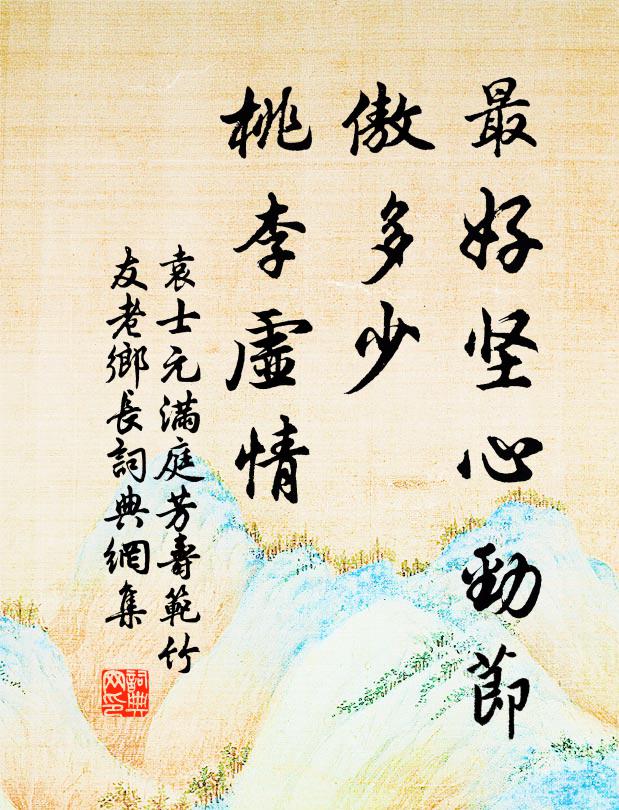 最好坚心勁節
傲多少
桃李虛情
袁士元滿庭芳壽範竹
友老鄉長詞典網集
詞典
网印